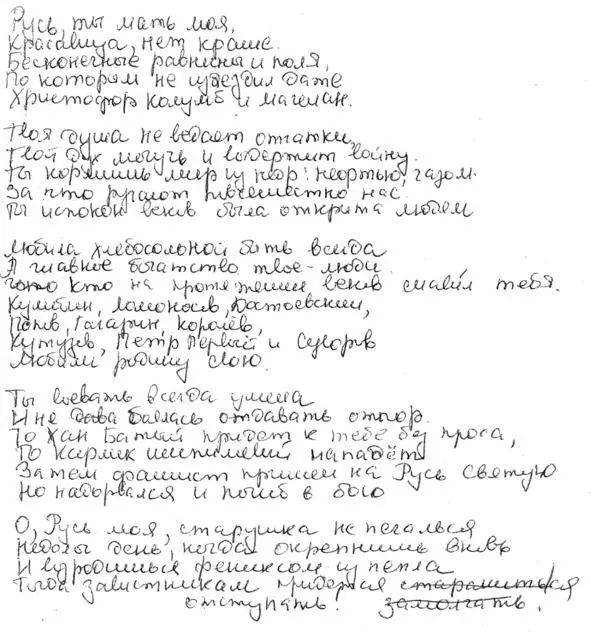 Русь, ты мать моя,
Красавица, нет краше.
Бесконечные равнины и поля,
По которым не изъездил даже
Христофор Колумб и Магелан.
Твоя душа не ведает отгатки,
Твой дух могучь и выдержит войну.
Ты кормишь мир из нор: нефтью, газом.
За что ругают повсеместно нас.
Ты испокон веков была открыта людям
Любила хлебосольной быть всегда
А главное богатство твоё - люди
кто на протяжении веков славил тебя.
Кулибин, Ломоносов, Достоевский,
Попов, Гагарин, Королёв,
Кутузов, Пётр Первый и Суворов
Любили родину свою.
Ты воевать всегда умела
И не боялась отдавать отпор.
То Хан Батый придёт к тебе без проса,
То Карлик нападёт
Затем фашист пришёл на Русь святую
Но надорвался и погиб в бою
О, Русь моя, старушка не печалься
Недолг день, когда окрепнешь вновь
И возродишься фениксом из пепла
Тогда завистникам придётся
отступать! замолчать.